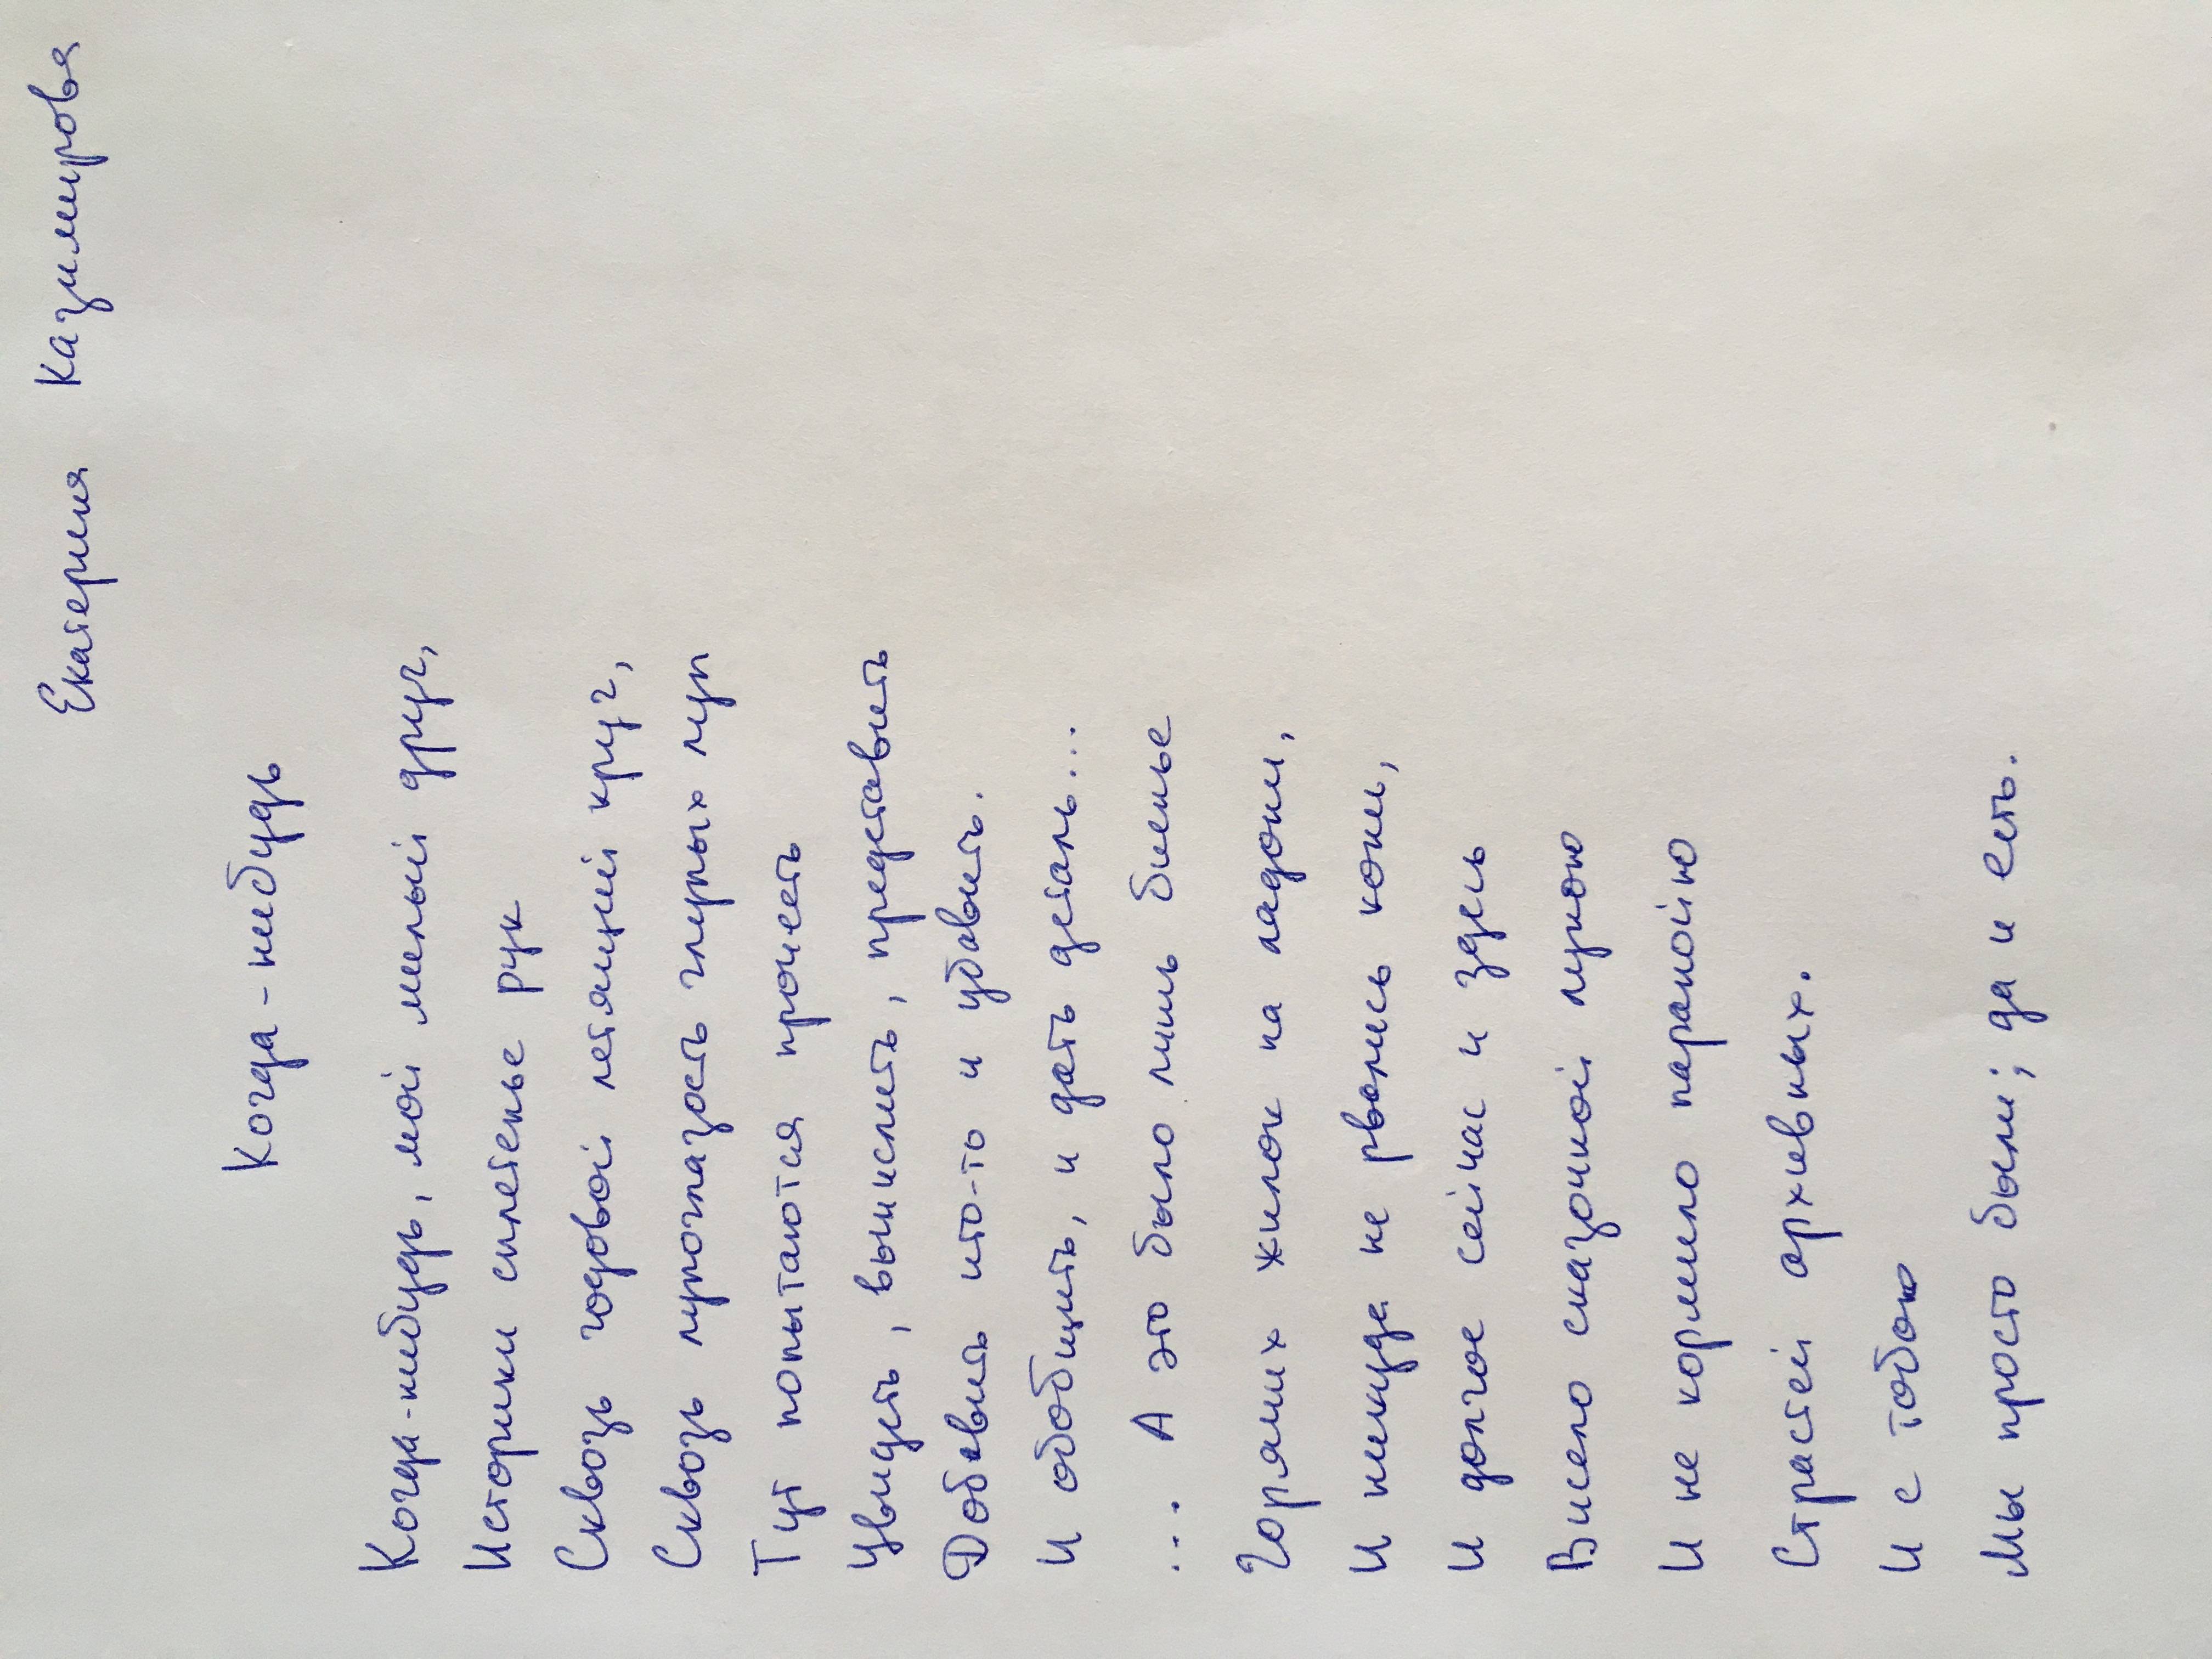 Екатерина Казимирова
Когда-нибудь
Когда-нибудь, мой милый друг,
Историки сплетенье рук
Сквозь годовой летящий круг,
Сквозь лупоглазость глупых луп
Тут попытаются прочесть
Увидеть, вычислить, представить
Добавить что-то и убавить.
И обобщить, и дать деталь...
... А это было лишь биенье
Горячих жилок на ладони,
И никуда не рвались кони,
И долгое сейчас и здесь
Висело сказочной луною
И не кормило паранойю
Страстей архивных.
И с тобою
Мы просто были; да и есть.